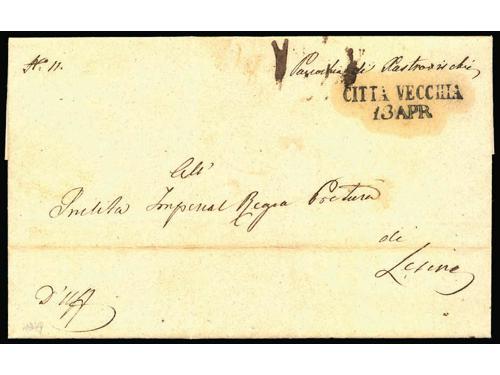 No. 11.
Parochia di Rastovischie
CITTA VECCHIA
13 APR.
All'
Inclita Imperial Regia Pretura
di
Lesina
D'Uff